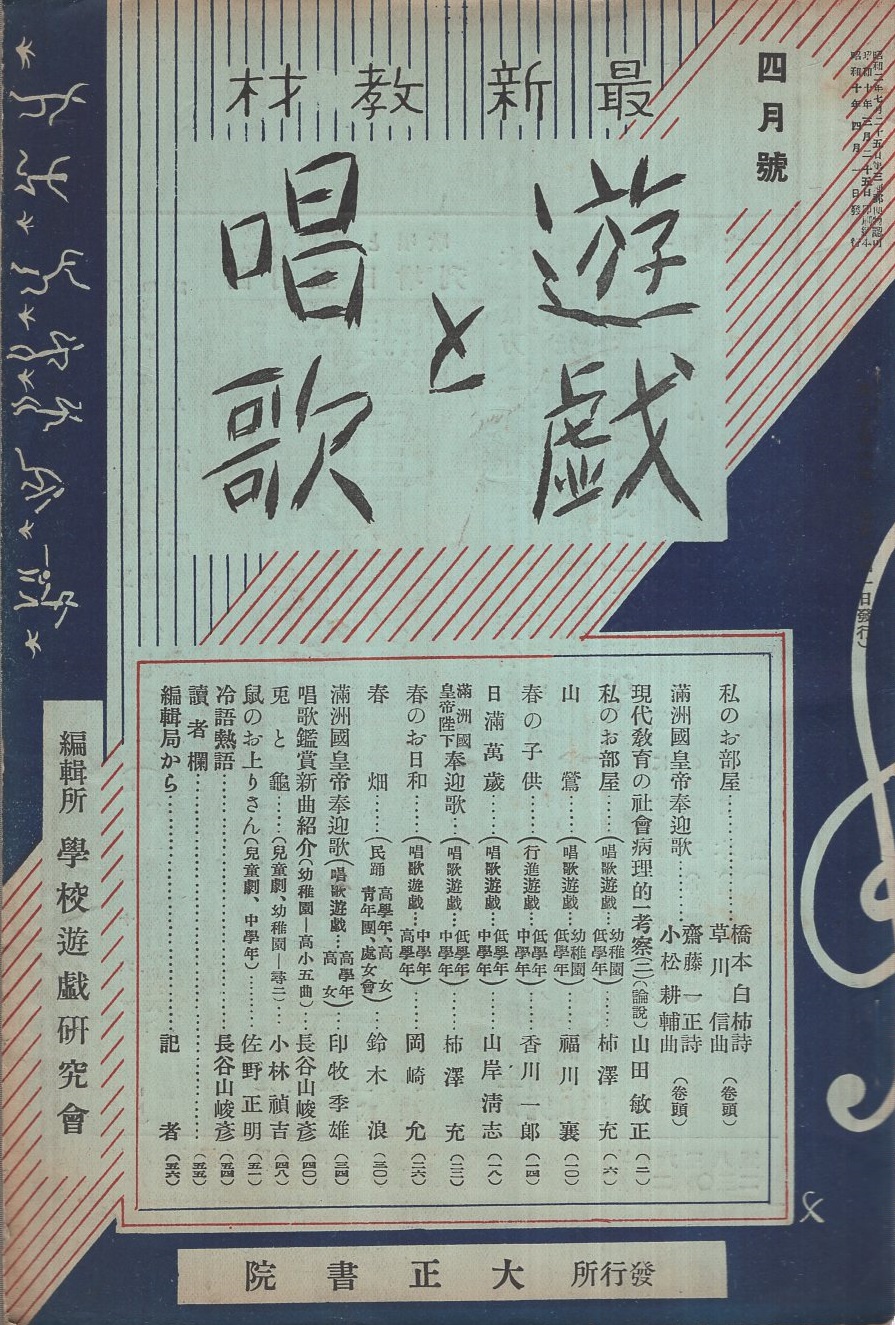 昭和二年七月二十五日第三種郵便物認可
昭和十年三月二十五日印刷納本
昭和十年四月一日發行
四月號
最新教材
遊戯
と
唱歌
一日發行)
私のお部屋………………橋本白柿詩 草川信曲(卷頭)
滿洲國皇帝奉迎歌………齋藤一正詩 小松耕輔曲(卷頭)
現代教育の社會病理的一考察(二)(論説)山田敏正(二)
私のお部屋……(唱歌遊戯…幼稚園 低學年)……柿澤充(六)
山鶯……(唱歌遊戯…幼稚園 低學年)……福川襄(一〇)
春の子供……(行進遊戯…低學年 中學年)……香川一郎(一四)
日滿萬歳……(唱歌遊戯…低學年 中學年)……山岸淸志(一八)
滿洲國皇帝陛下奉迎歌…(唱歌遊戯…低學年 中學年)……柿澤充(二二)
春のお日和……(唱歌遊戯…中學年 高學年)……岡崎允(二六)
春畑……(民踊 高學年、高女 青年團、處女會)……鈴木浪(三〇)
滿洲國皇帝奉迎歌(唱歌遊戯…高學年 高女)…印牧季雄(三四)
唱歌鑑賞新曲紹介(幼稚園—高小五曲)…長谷山峻彦(四〇)
兎と龜……(兒童劇、幼稚園—尋二)…小林禎吉(四八)
鼠のお上りさん(兒童劇、中學年)……佐野正明(五一)
冷語熱語………………長谷山峻彦(五四)
讀者欄………………(五五)
編輯局から………………記者(五六)
編輯所 學校遊戯研究會
發行所 大正書院